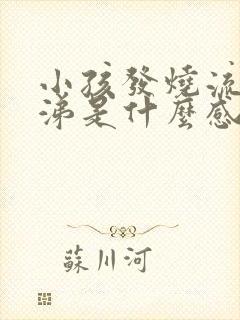 小孩發燒流
涕是什麼感
蘇川河